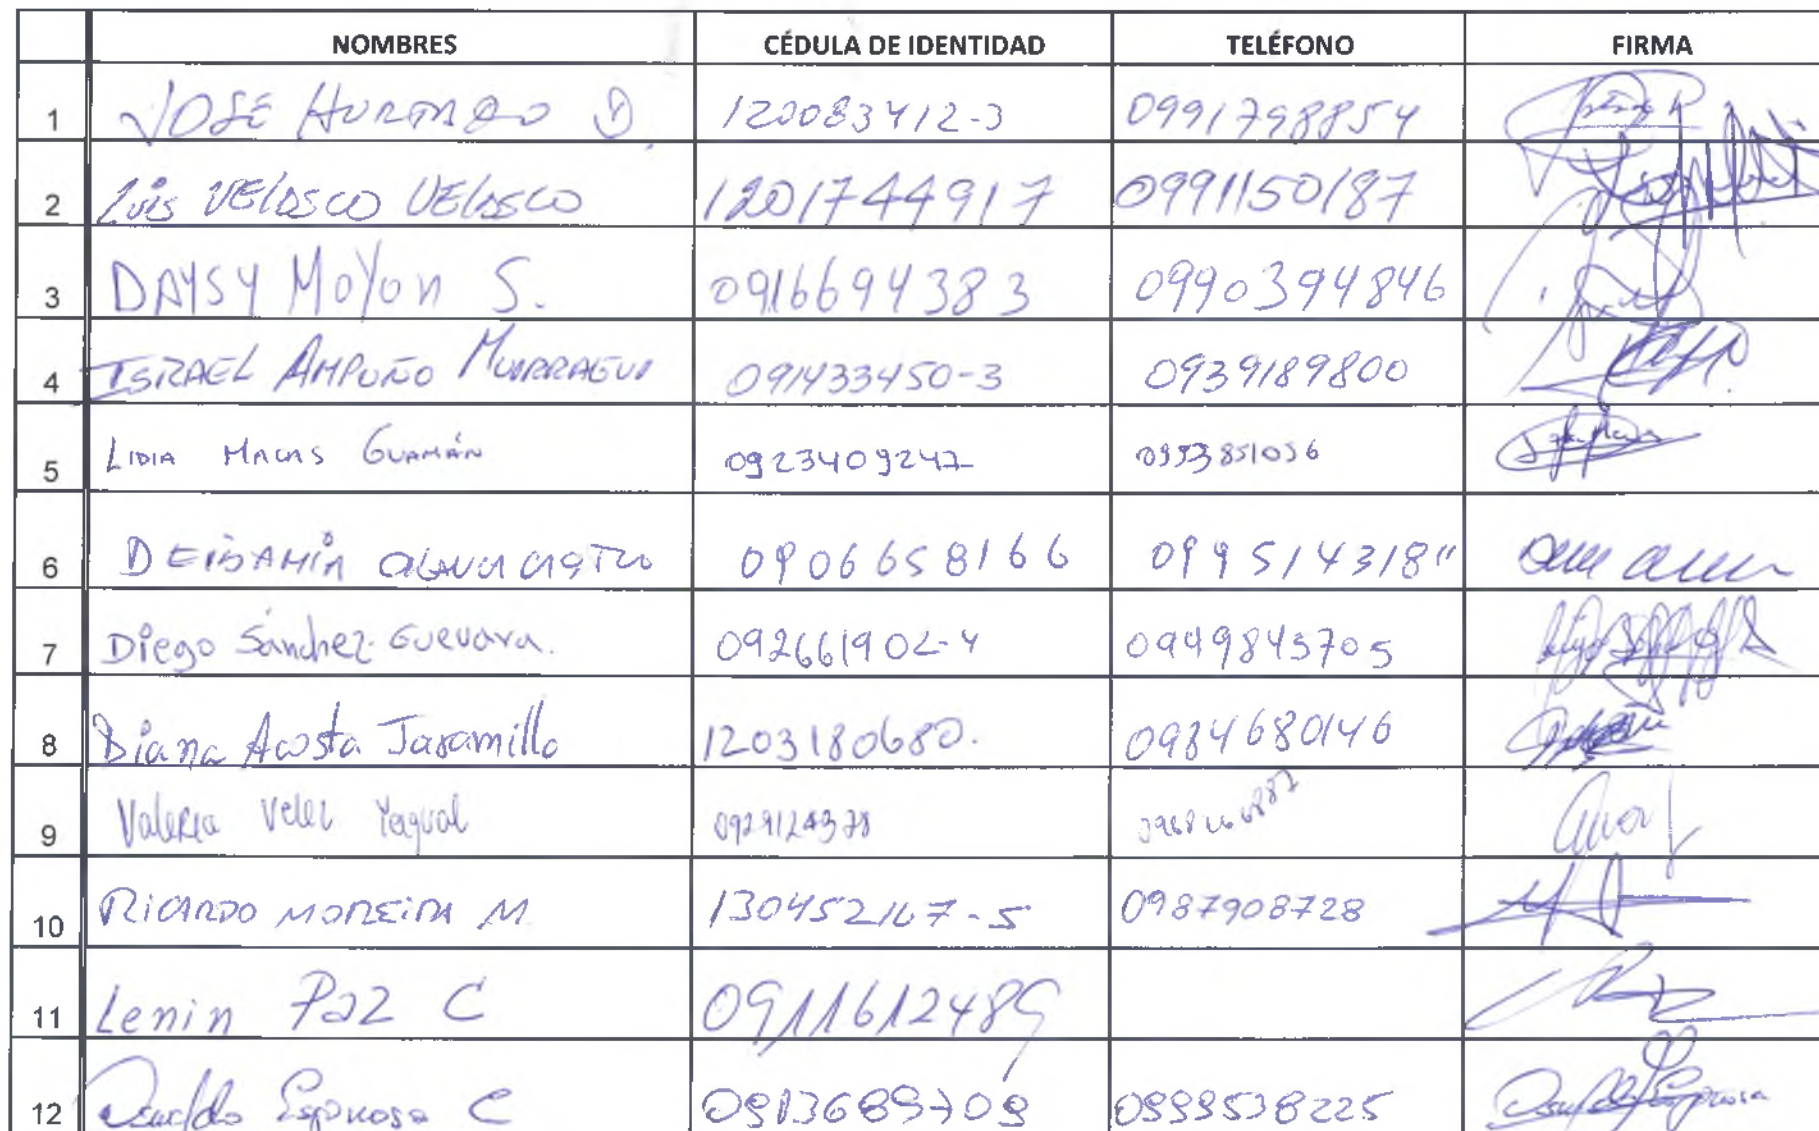 NOMBRES CÉDULA DE IDENTIDAD TELÉFONO FIRMA
1 JOSE HURTADO D. 120083412-3 0991798854
2 Luis VELASCO VELASCO 1201744917 0991150187
3 DAYSY MoYon S. 0916694383 0990394846
4 ISRAEL AMPUÑO 091433450-3 0939189800
5 LIDIA MACIAS GUAMÁN 0923409247 0953851036
6 CASTRO 0906658166
7 Diego Sánchez Guevara. 092661902-4 0949843705
8 Diana Acosta Jaramillo 1203180680. 0984680146
9 Valeria Velez Yagual
10 RICARDO MOREIRA M. 130452167-5 0987908728
11 Lenin Paz C 0911612489
12 Oswaldo Espinosa C 0913689709 0999538225 Oswaldo Espinosa